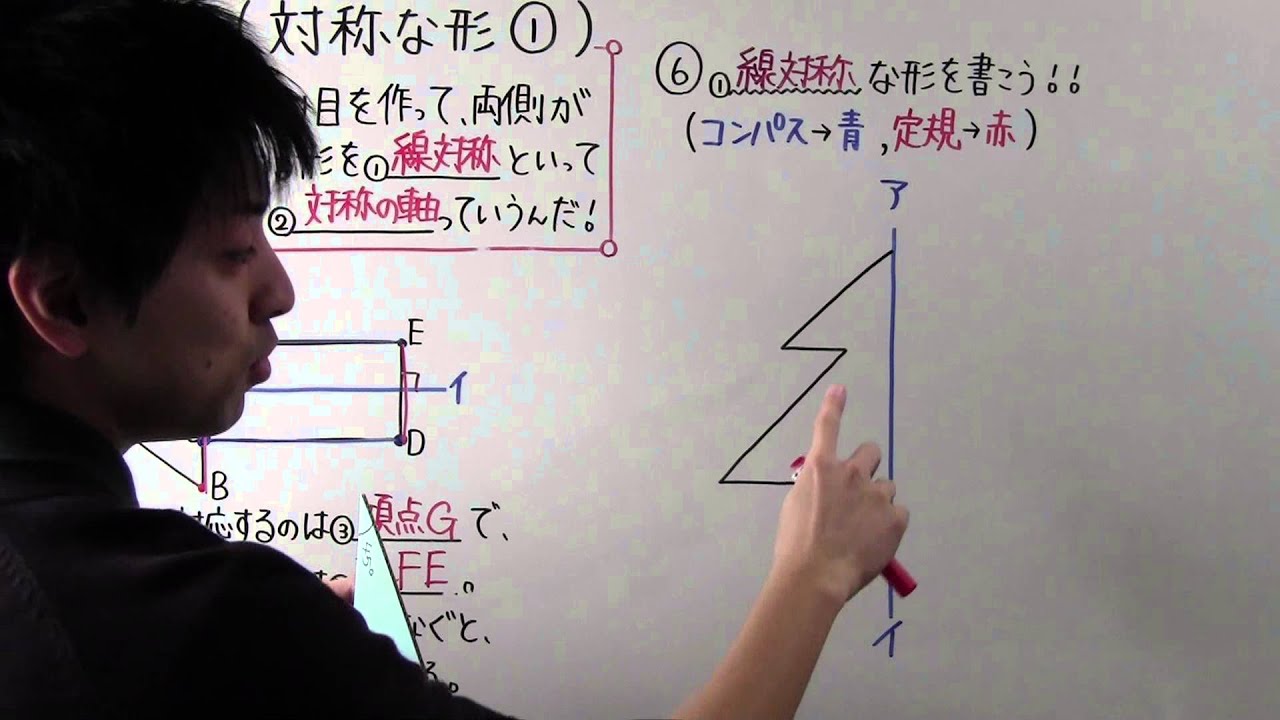 (対称な形①)
目を作って、両側が
形を①線対称といって
②対称の軸っていうんだ!
E
イ
D
B
応するのは③頂点Gで、
FE。
なぐと、
45°
⑥①線対称な形を書こう!!
(コンパス→青,定規→赤)
ア
イ